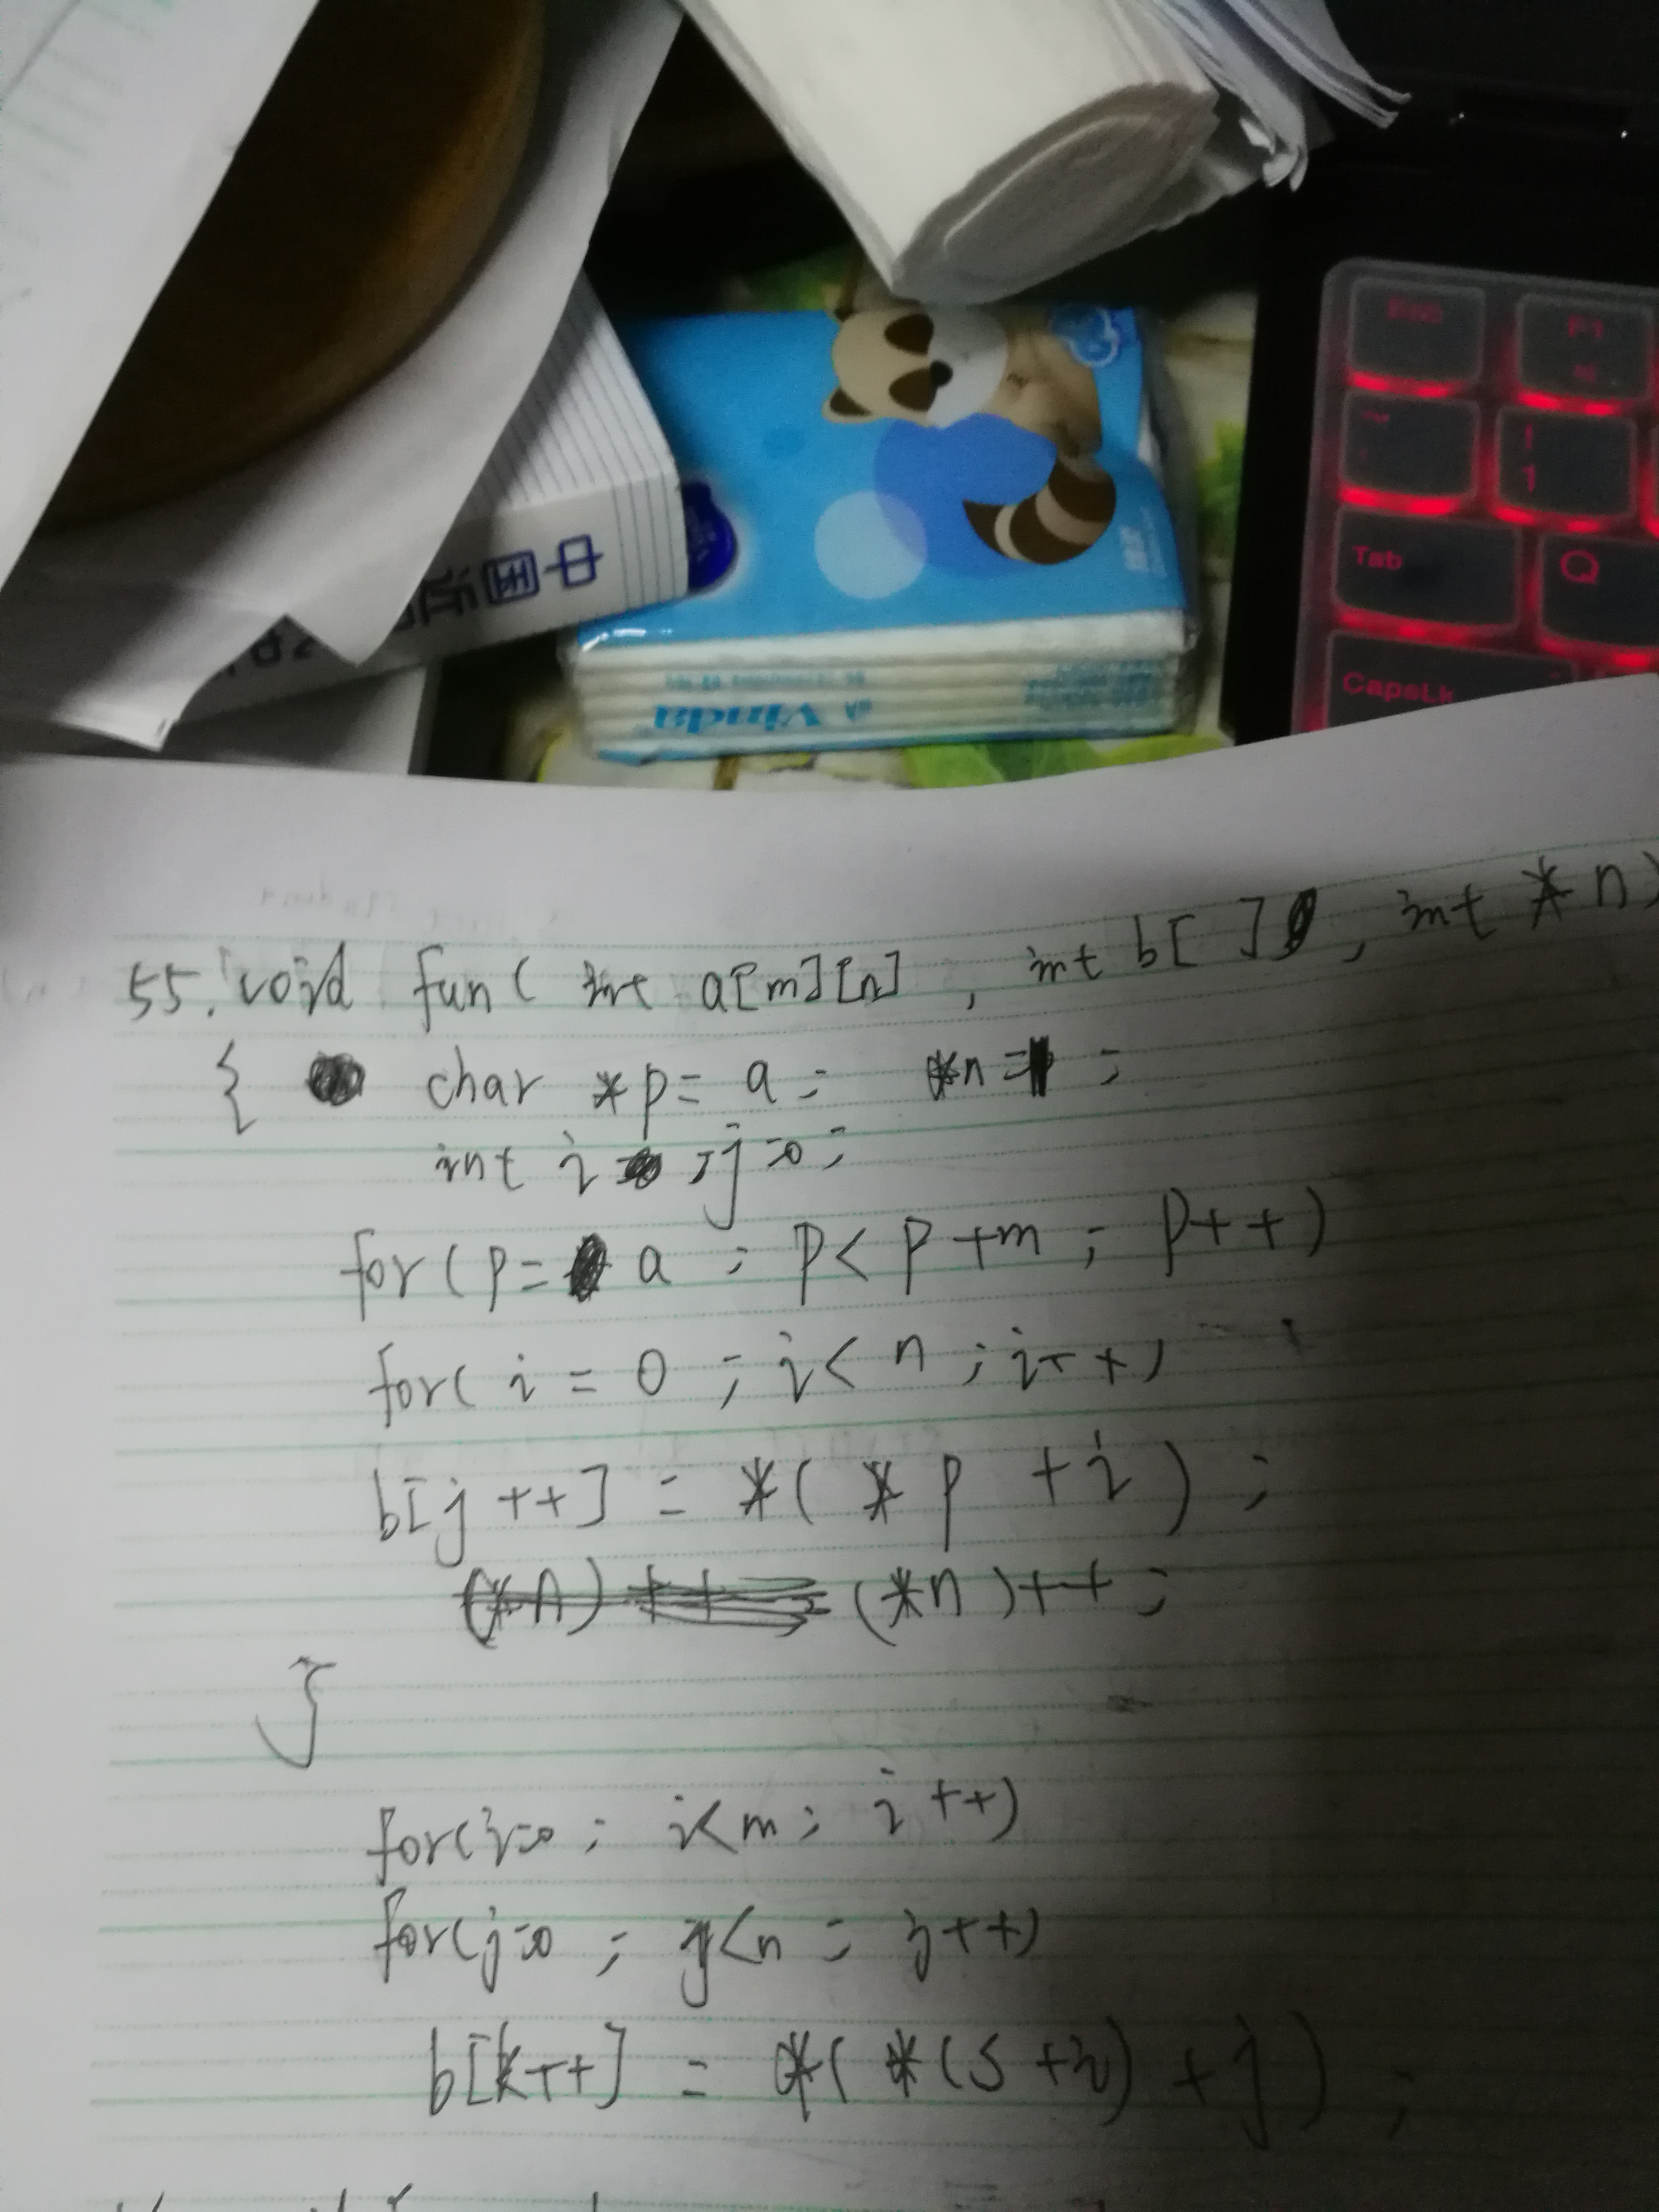 Esc
F1
~
!
1
Tab
Q
CapsLk
中国
Vinda
55. void fun( int a[m][n] , int b[ ] , int *n)
{ char *p= a; *n = ;
int i , j=0;
for( p= a ; p< p+m ; p++)
for( i = 0 ; i< n ; i++)
b[j++] = *( *p +i ) ;
(*n)++ (*n)++;
}
for(i=0 ; i<m ; i++)
for(j=0 ; j<n ; j++)
b[k++] = *( *(s+i) + j ) ;